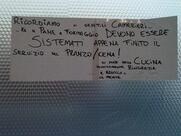 RICORDIAMO AI GENTILI CAMERIERI..
PANE E FORMAGGIO DEVONO ESSERE
SISTEMATI APPENA FINITO IL
SERVIZIO DEL PRANZO/CENA!
CUCINA
RINGRAZIA